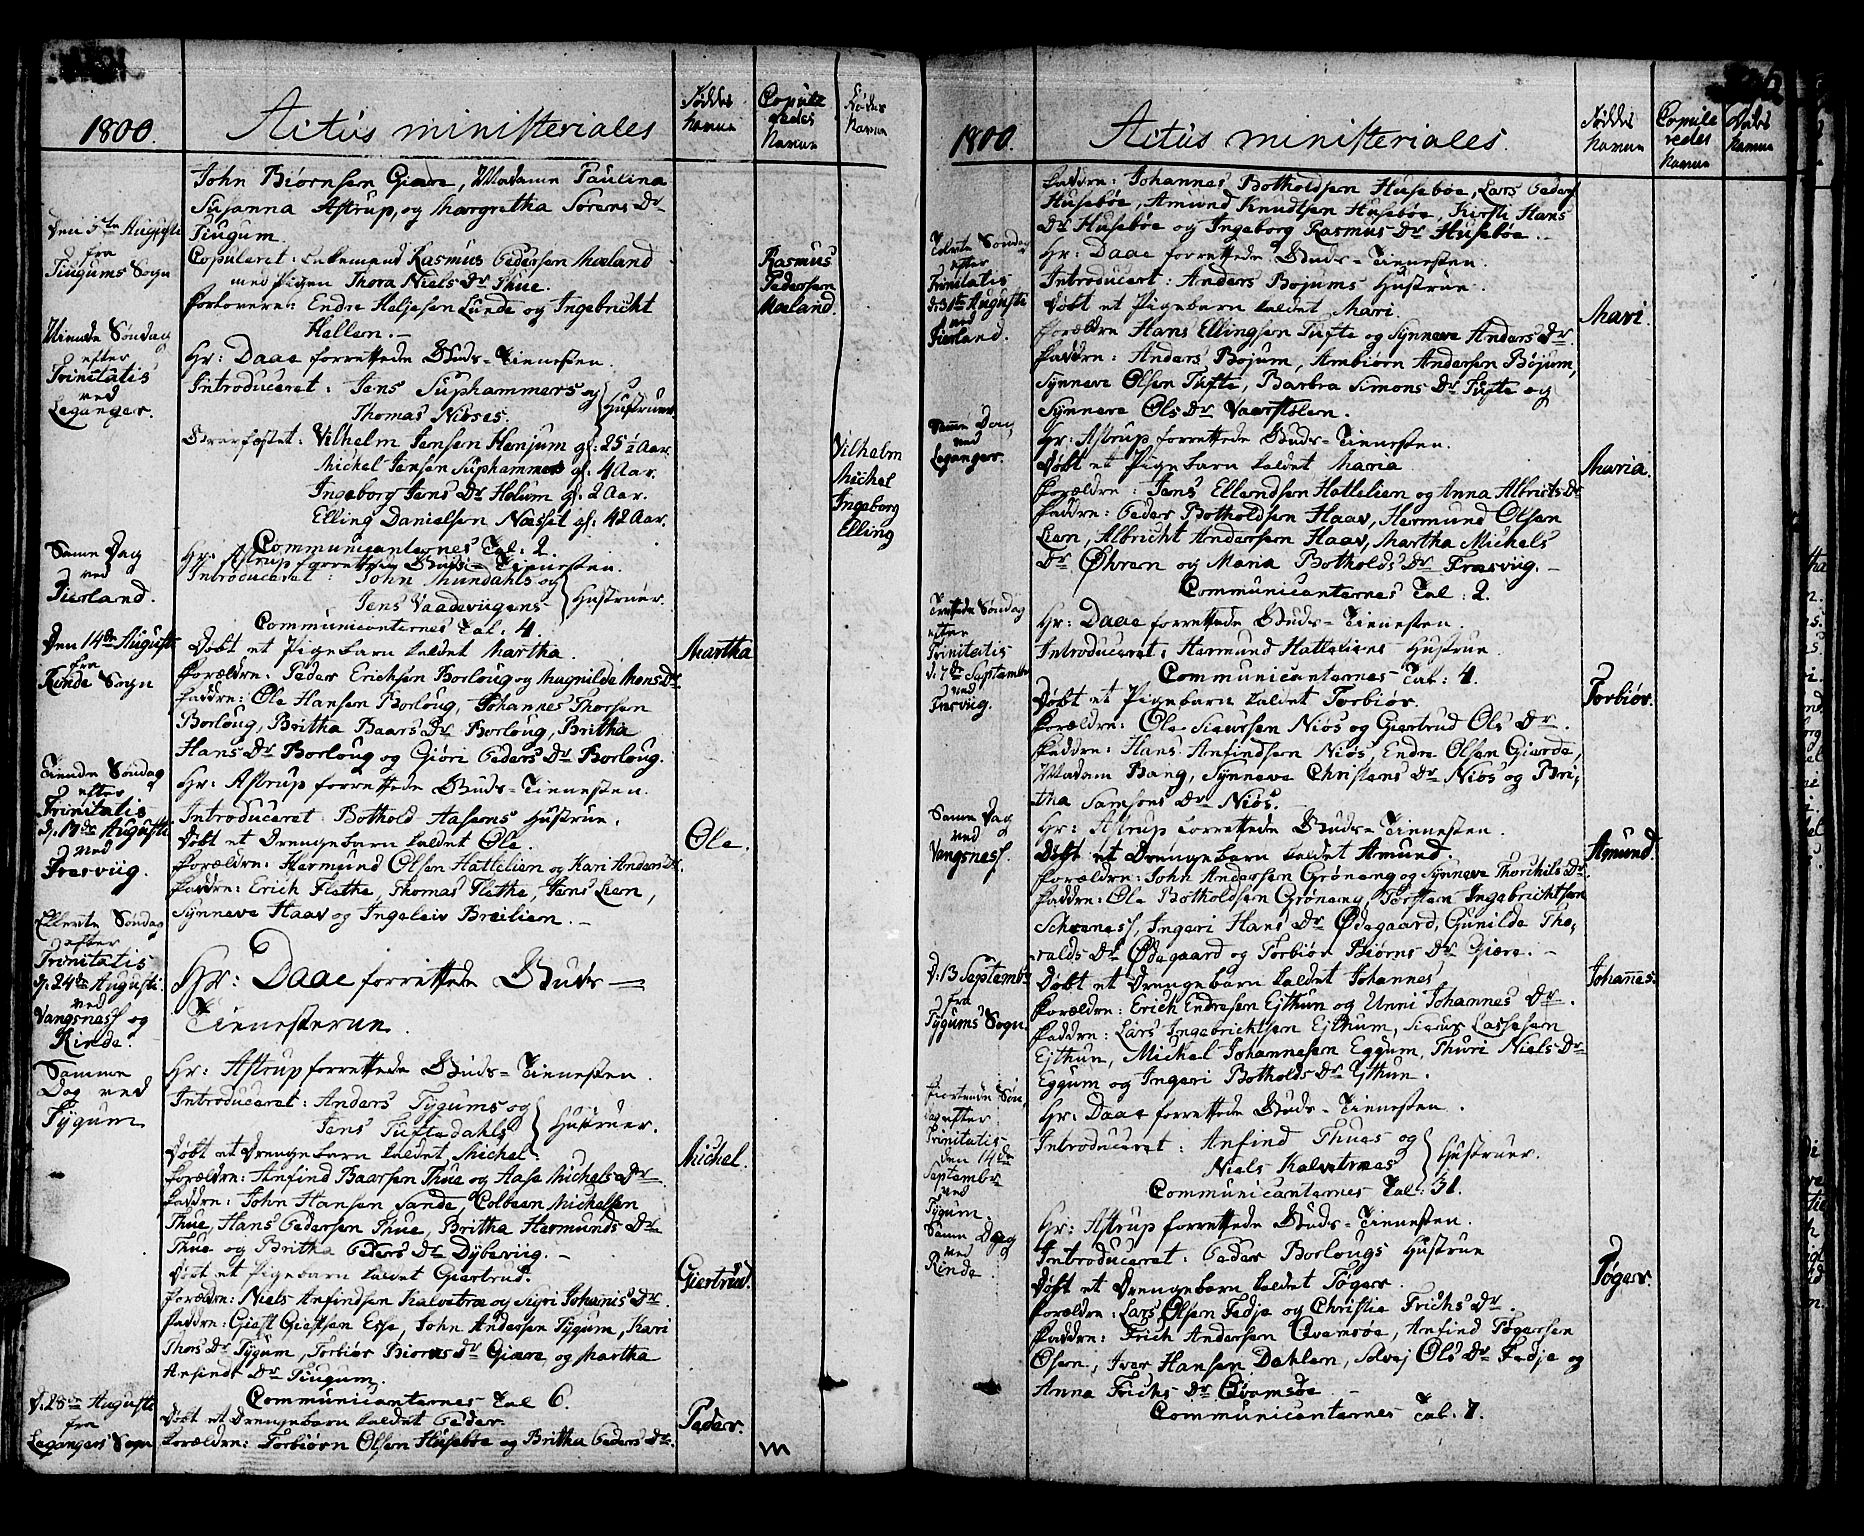 1800.
Actus ministeriales
Føddes Navne
Copuleredes Navne
Dødes Navne
John Biørnsen Giære, Madame Paulina
Susanna Astrup, og Margretha Sørens Dr
Tiugum.
Den 5te Augusti
fra
Tiugums Sogn
Copuleret: Enkemand Rasmus Pedersen Mæland
med Pigen Thora Niels Dr Thue.
Rasmus
Pedersen
Mæland
Forlovere: Endre Heljesen Lunde og Ingebricht
Hellem.
Niende Søndag
efter
Trinitatis
ved
Leganger.
Hr: Daae forrettede Guds-Tienesten.
Introduceret: Jens Suphammers og
Thomas Niøses
Hustruer.
Jordfæstet: Vilhelm Jensen Henjum gl: 25 1/2 Aar.
Michel Jensen Suphammer gl: 4 Aar.
Ingeborg Jens Dr Helum gl: 2 Aar.
Elling Danielsen Næsset gl: 42 Aar.
Vilhelm
Michel
Ingeborg
Elling
Communicanternes Tal: 2.
Samme Dag
ved
Fierland.
Hr: Astrup forrettede Guds-Tienesten.
Introduceret: John Mundahls og
Jens Vaadeviigens
Hustruer.
Communicanternes Tal: 4.
Den 14de Augusti
fra
Rinde Sogn
Døbt et Pigebarn kaldet Martha.
Martha
Forældre: Peder Erichsen Borloug og Magnilde Mons Dr
Faddre: Ole Hansen Borloug, Johannes Thorsen
Borloug, Britha Baars Dr Borloug, Britha
Hans Dr Borloug og Giøri Peders Dr Borloug.
Tiende Søndag
efter
Trinitatis
d. 17de Augusti
ved
Fresviig.
Hr: Astrup forrettede Guds-Tienesten.
Introduceret Bothold Aasens Hustrue.
Døbt et Drengebarn kaldet Ole.
Ole.
Forældre: Hermund Olsen Hattelien og Kari Anders Dr.
Faddre: Erich Flethe, Thomas Flethe, Jens Lien,
Synneve Haav og Ingeleiv Breilien.
Ellevte Søndag
efter
Trinitatis
d. 24de Augusti
ved
Vangsness og
Rinde.
Hr: Daae forrettede Guds-
Tienesterne.
Samme
Dag ved
Tygum
Hr: Astrup forrettede Guds-Tienesten.
Introduceret: Anders Tygums og
Jens Tuftedahls
Hustruer.
Døbt et Drengebarn kaldet Michel.
Michel.
Forældre: Anfind Baarsen Thue og Aase Michels Dr
Faddre: John Hansen Sande, Colbeen Michelsen
Thue, Hans Pedersen Thue, Britha Hermunds Dr
Thue og Britha Peders Dr Dybeviig.
Døbt et Pigebarn kaldet Giertrud.
Giertrud.
Forældre: Niels Anfindsen Kalvetræ og Sigri Johanis Dr
Faddre: Giest Giestsen Esse, John Andersen Tygum, Kari
Thors Dr Tygum, Torbiør Biørns Dr Giære og Martha
Anfinds Dr Tiugum.
Communicanternes Tal 6.
D. 28de Augusti
fra
Legangers Sogn
Døbt et Drengebarn kaldet Peder.
Peder.
Forældre: Torbiørn Olsen Husebøe og Britha Peders Dr
1800.
Actus ministeriales.
Fødde Navne
Copuleredes Navne
Dødes Navne
Faddre: Johannes Botholdsen Husebøe, Lars Peders
Husebøe, Amund Knudtsen Husebøe, Kirsti Hans
Dr Husebøe og Ingeborg Rasmus Dr Husebøe.
Tolvte Søndag
efter
Trinitatis
d. 31te Augusti
ved
Fierland.
Hr: Daae forrettede Guds-Tienesten.
Introducert: Anders Bojums Hustrue.
Døbt et Pigebarn kaldet Mari.
Mari.
Forældre Hans Ellingsen Tufte og Synneve Anders Dr
Faddre: Anders Bojum, Ambiørn Andersen Bøjum,
Synneve Olsen Tufte, Barbra Simons Dr Tufte og
Synneve Ols Dr Vaarstølen.
Samme Dag
ved
Leganger.
Hr: Astrup forrettede Guds-Tienesten.
Døbt et Pigebarn kaldet Maria
Maria.
Forældre: Jens Ellendsen Hattelien og Anna Albrichts Dr
Faddre: Peder Botholdsen Haav, Hermund Olsen
Lien, Albricht Andersen Haav, Martha Michels
Dr Øhren og Maria Botholds Dr Fresviig.
Communicanternes Tal: 2.
Trettende Søndag
efter
Trinitatis
d. 7de Septembr
ved
Fresviig.
Hr: Daae forrettede Guds-Tienesten.
Introduceret: Hermund Hatteliens Hustrue.
Communicanternes Tal: 4.
Døbt et Pigebarn kaldet Torbiør.
Torbiør.
Forældre: Ole Siversen Niøs og Giertrud Ols Dr
Faddre: Hans Anfindsen Niøs, Endre Olsen Gierde,
Madam Bang, Synneve Christens Dr Niøs og Bri-
tha Samsons Dr Niøs.
Samme Dag
ved
Vangsness.
Hr: Astrup forrettede Guds-Tienesten.
Døbt et Drengebarn kaldet Amund.
Amund.
Forældre: John Andersen Grøneng og Synneve Thorchils Dr
Faddre: Ole Botholdsen Grøneng, Torsten Ingebrichtsen
Scharness, Ingeri Hans Dr Ødegaard, Gunilde Tho-
ralds Dr Ødegaard og Torbiør Biørns Dr Giære.
D. 13 Septembr
fra
Tygums Sogn
Døbt et Drengebarn kaldet Johannes
Johannes.
Forældre: Erich Endresen Ejthun og Unni Johannes Dr.
Faddre: Lars Ingebrichtsen Ejthum, Siur Lassesen
Ejthun, Michel Johannesen Eggum, Thuri Niels Dr
Eggum og Ingeri Botholds Dr Ythun.
Fiortende Søn-
dag efter
Trinitatis
den 14de
Septembr
ved
Tygum.
Hr: Daae forrettede Guds-Tienesten.
Introduceret: Anfind Thues og
Niels Kalvetræes
Hustruer.
Communicanternes Tal: 31.
Samme Dag
ved
Rinde.
Hr: Astrup forrettede Guds-Tienesten.
Introduceret: Peder Borlougs Hustrue
Døbt et Drengebarn kaldet Tøger.
Tøger.
Forældre: Lars Olsen Fedje og Christie Erichs Dr
Faddre: Erich Andersen Qvamsøe, Anfind Tøgersen
Øren, Iver Hansen Dahlen, Solvej Ols Dr Fedje og
Anna Erichs Dr Qvamsøe
Communicanternes Tal: 7.